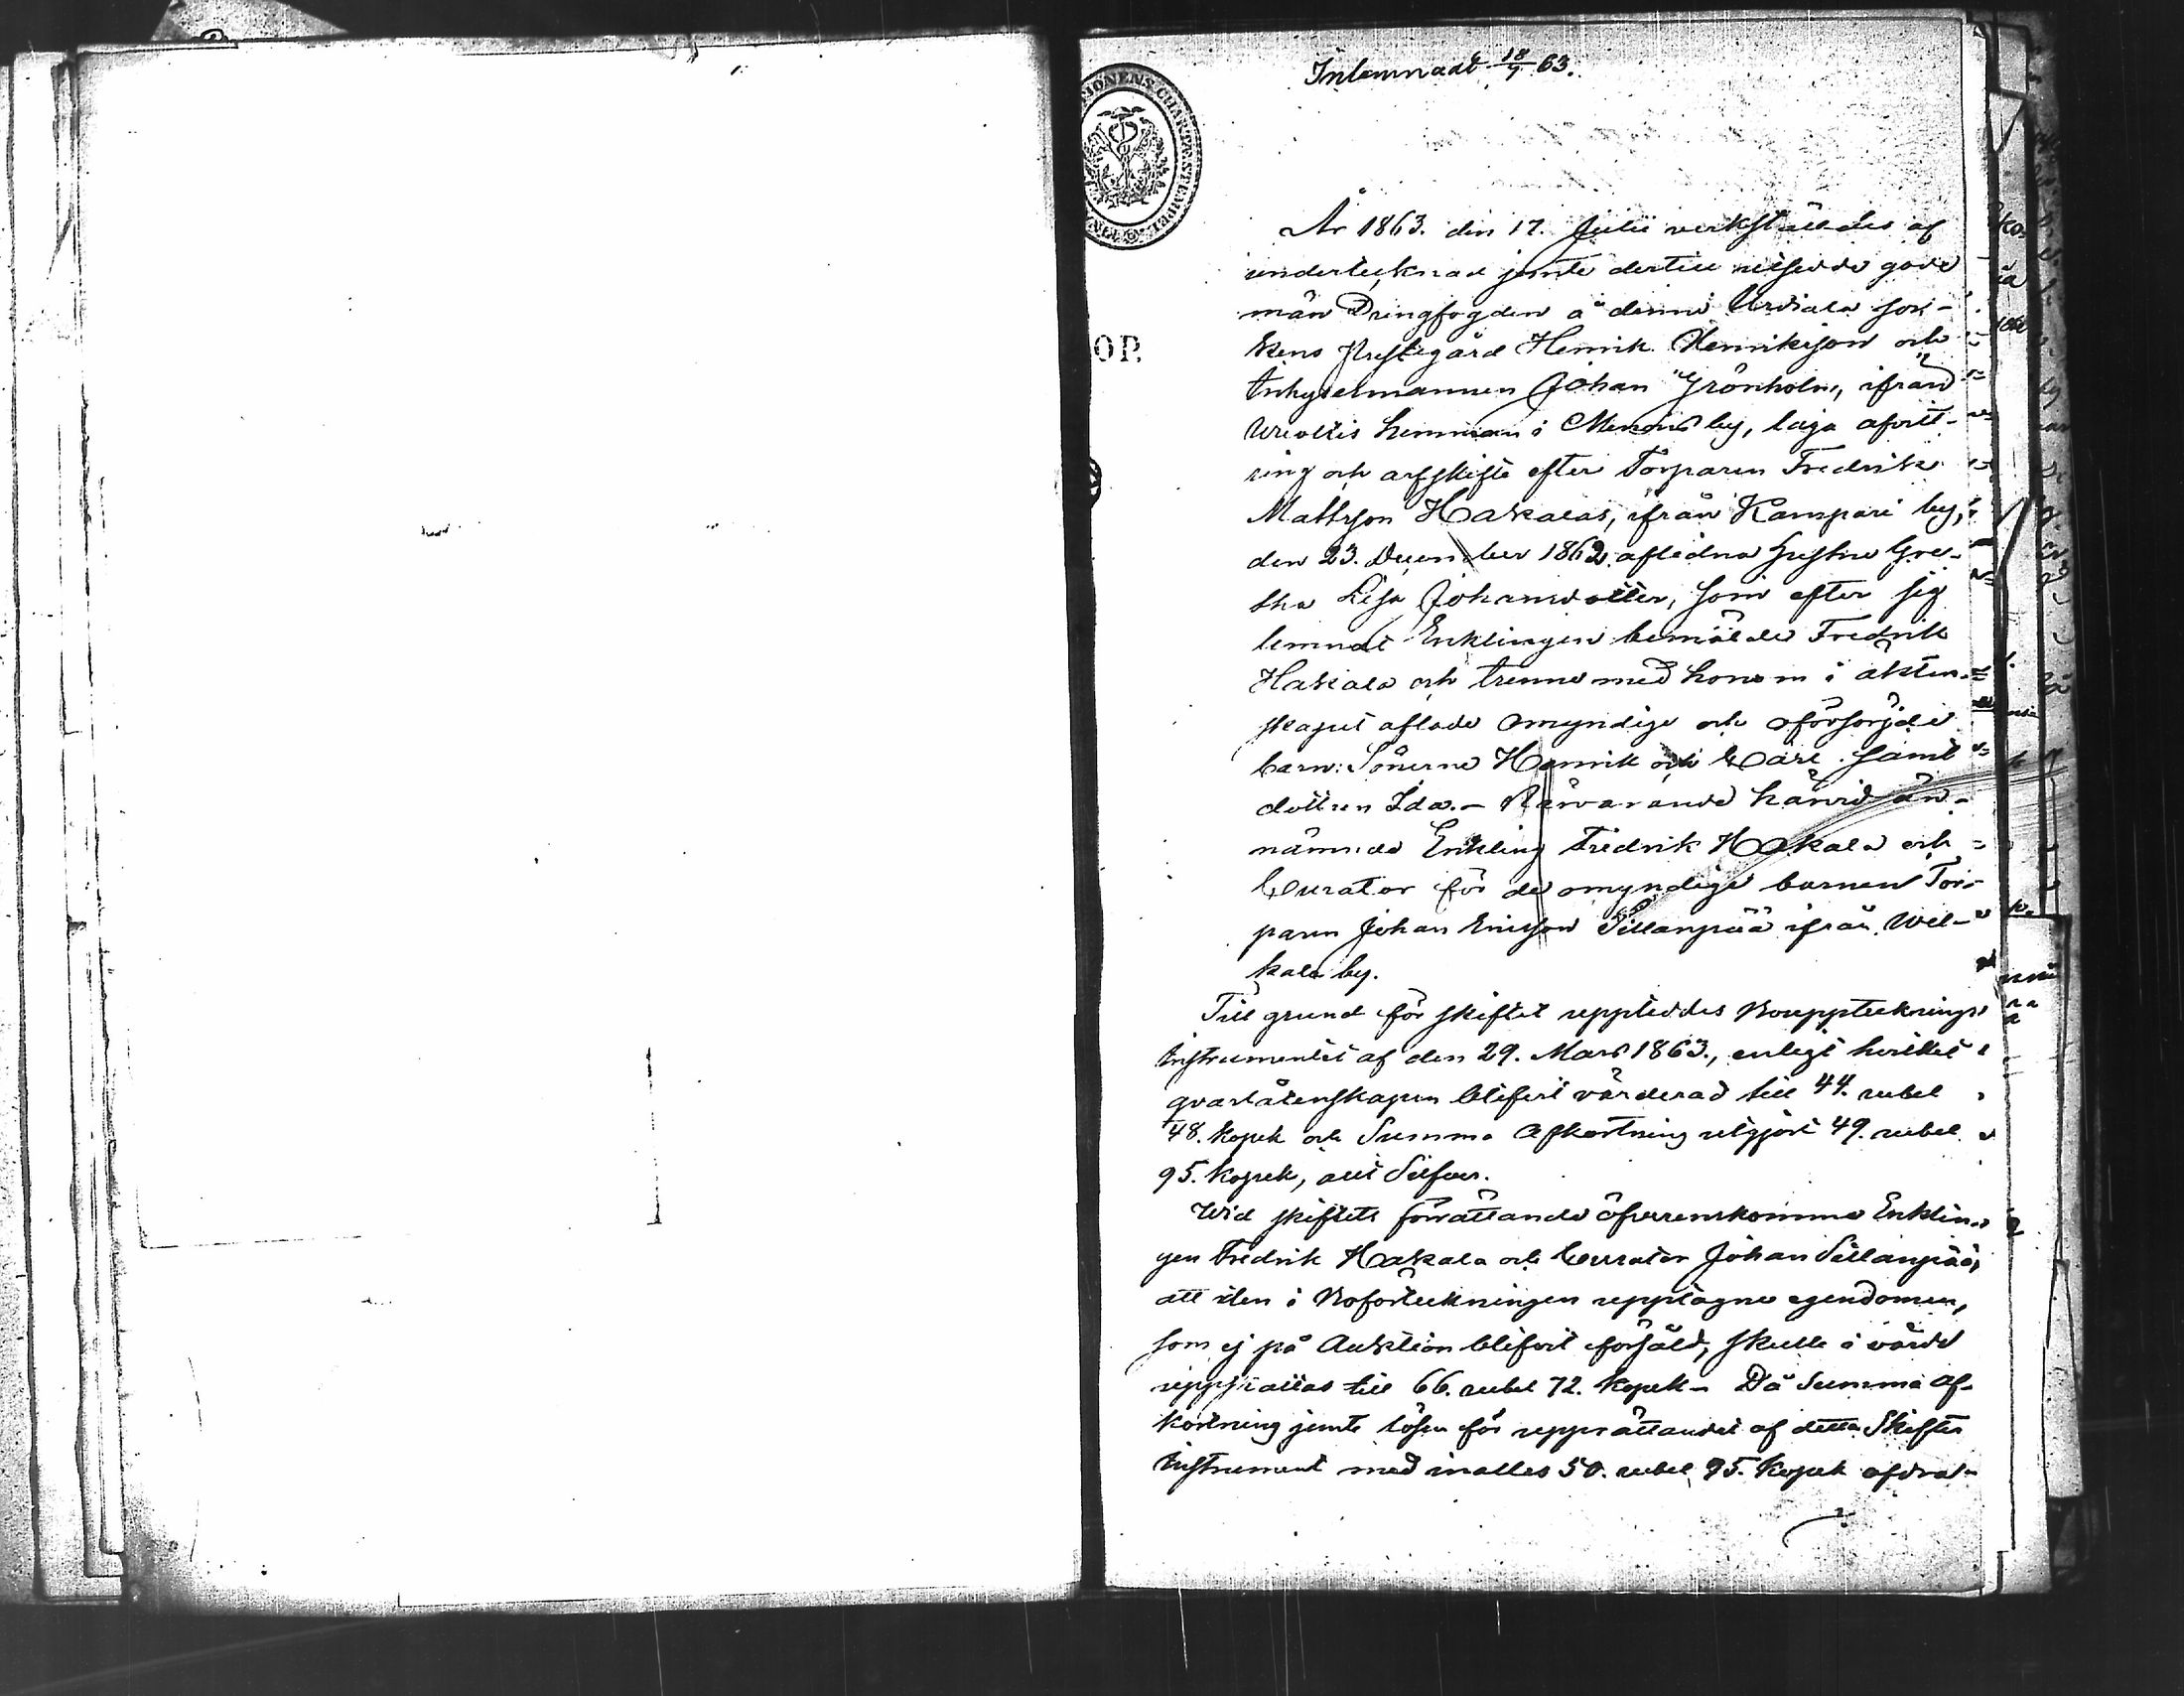 Inlemnadt 18/7 63.
År 1863. den 17. Julii verkställdes af
undertecknad jemte dertill utsedde gode
män Drengfogden å denne Urdiala soc-
kens Prestegård Henrik Henriksson och
Inhyselmannen Johan Grönholm, ifrån
hemman i by, laga afvitt-
ring och arfskifte efter Torparen Fredrik
Mattsson Hakalas, ifrån Kampari by,
den 23. December 1862 aflidna hustru Gre-
tha Lisa Johansdotter, som efter sig
lemnat Enklingen bemälde Fredrik
Hakala och trenne med honom i äkten-
skapet aflade omyndige och oförsörjde
barn: Sönerne Henrik och Carl samt
dottren Ida. - Närvarande härvid än-
nämnde Enkling Fredrik Hakala och
Curator för de omyndige barnen Tor-
paren Johan Ericsson Sillanpää ifrån Wel-
kala by.
Till grund för skiftet upplästes Bouppteknings
Instrumentet af den 29. Mars 1863., enligt hvilket
qvarlåtenskapen blifvit värderad till 44. rubel
48. kopek och Summa Afkortning utgjort 49. rubel
95. kopek, allt Silfver.
Wid skiftets förrättande öfverenskommo Enklin-
gen Fredrik Hakala och Curator Johan Sillanpää,
att den i Boförteckningen upptagne egendomen,
som ej på Auktion blifvit försåld, skulle i värde
upptagas till 66. rubel 72. kopek - Då Summa af-
kortning jemte lösen för upprättandet af detta Skiftes
Instrument med inalles 50. rubel 95. kopek afdra-
OP.